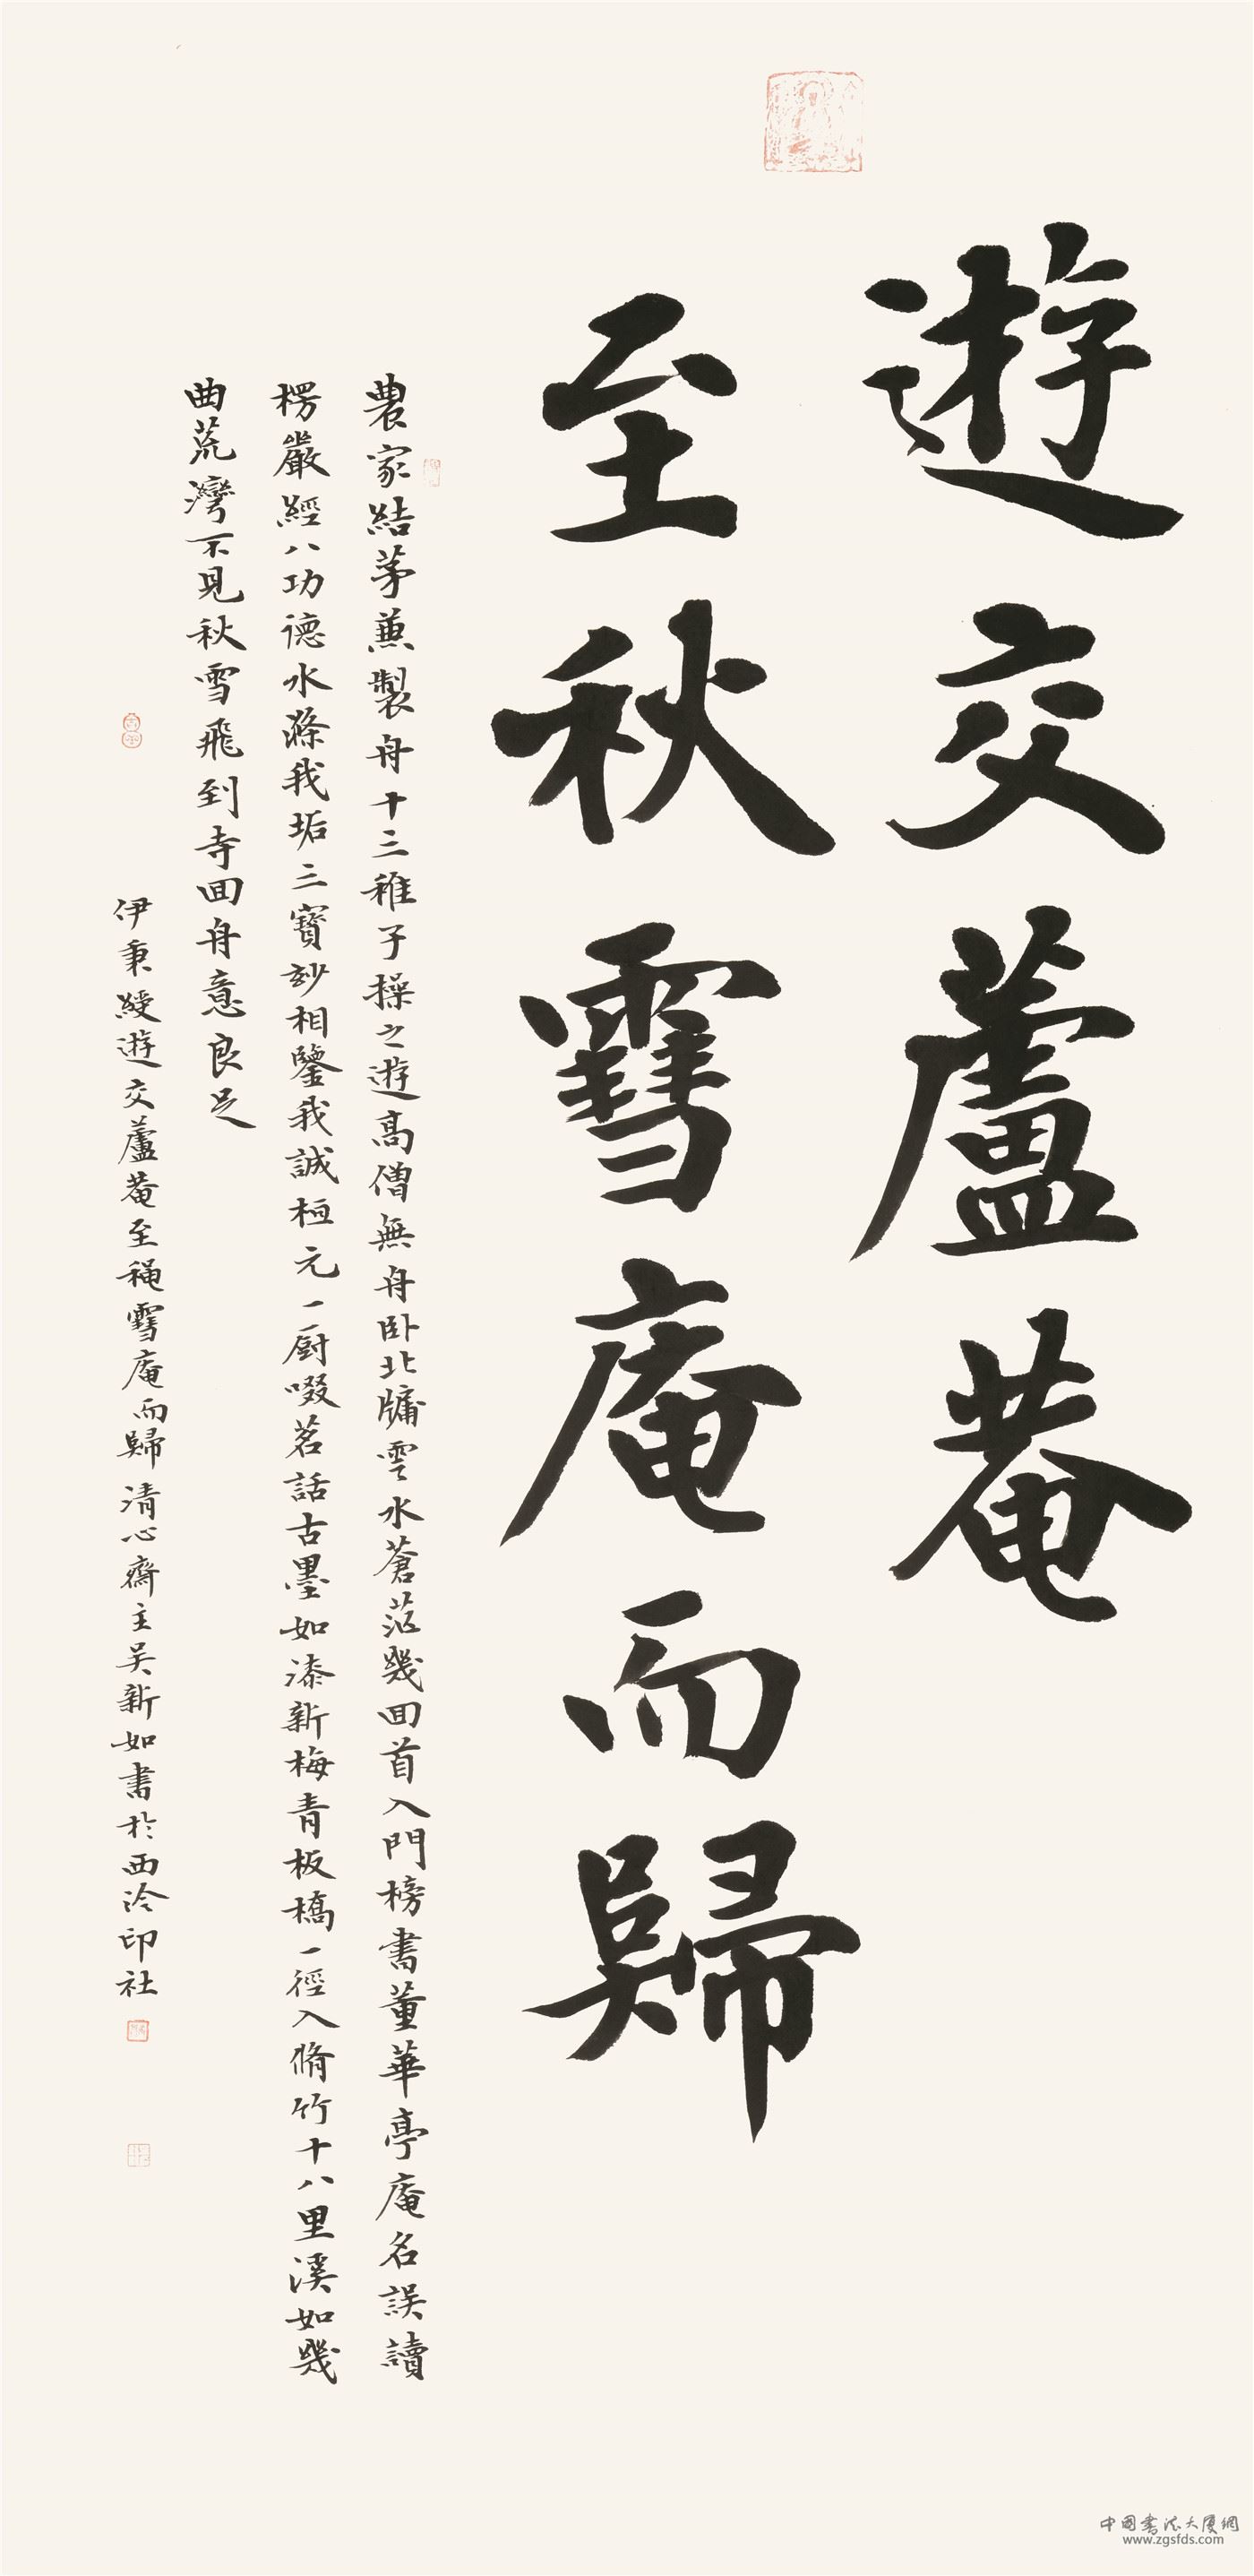 遊交蘆菴
至秋雪庵而歸
農家結茅兼製舟十三稚子操之遊高僧無舟卧北牗雲水蒼茫幾回首入門榜書董華亭庵名誤讀
楞嚴經八功德水滌我垢三寶妙相鑒我誠桓元一厨啜茗話古墨如漆新梅青板橋一徑入脩竹十八里溪如幾
曲荒灣不見秋雪飛到寺回舟意良足
伊秉綬遊交蘆菴至秌雪庵而歸清心齋主吴新如書於西泠印社
中国书法大厦網
www.zgsfds.com